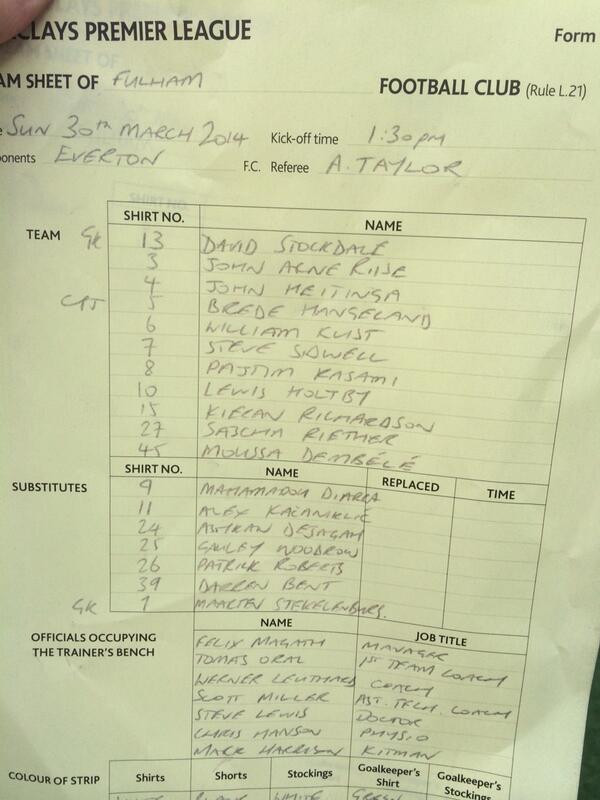 CLAYS PREMIER LEAGUE Form
AM SHEET OF FULHAM FOOTBALL CLUB (Rule L.21)
e SUN 30TH MARCH 2014 Kick-off time 1:30pm
onents EVERTON F.C. Referee A. TAYLOR
SHIRT NO. NAME
TEAM GK 13 DAVID STOCKDALE
3 JOHN ARNE RIISE
4 JOHN HEITINGA
CPT 5 BREDE HANGELAND
6 WILLIAM KVIST
7 STEVE SIDWELL
8 PAJTIM KASAMI
10 LEWIS HOLTBY
15 KIERAN RICHARDSON
27 SASCHA RIETHER
45 MOUSSA DEMBÉLÉ
SHIRT NO. NAME REPLACED TIME
SUBSTITUTES 9 MAHAMADOU DIARRA
11 ALEX KACANIKLIC
24 ASHKAN DEJAGAH
25 CAULEY WOODROW
26 PATRICK ROBERTS
39 DARREN BENT
GK 1 MAARTEN STEKELENBURG.
NAME JOB TITLE
OFFICIALS OCCUPYING THE TRAINER'S BENCH FELIX MAGATH MANAGER
TOMAS ORAL 1ST TEAM COACH
WERNER LEUTHARD COACH
SCOTT MILLER AST. TECH. COACH
STEVE LEWIS DOCTOR
CHRIS HANSON PHYSIO
MARK HARRISON KITMAN
COLOUR OF STRIP Shirts Shorts Stockings Goalkeeper's Shirt Goalkeeper's Stockings
WHITE BLACK WHITE GREEN